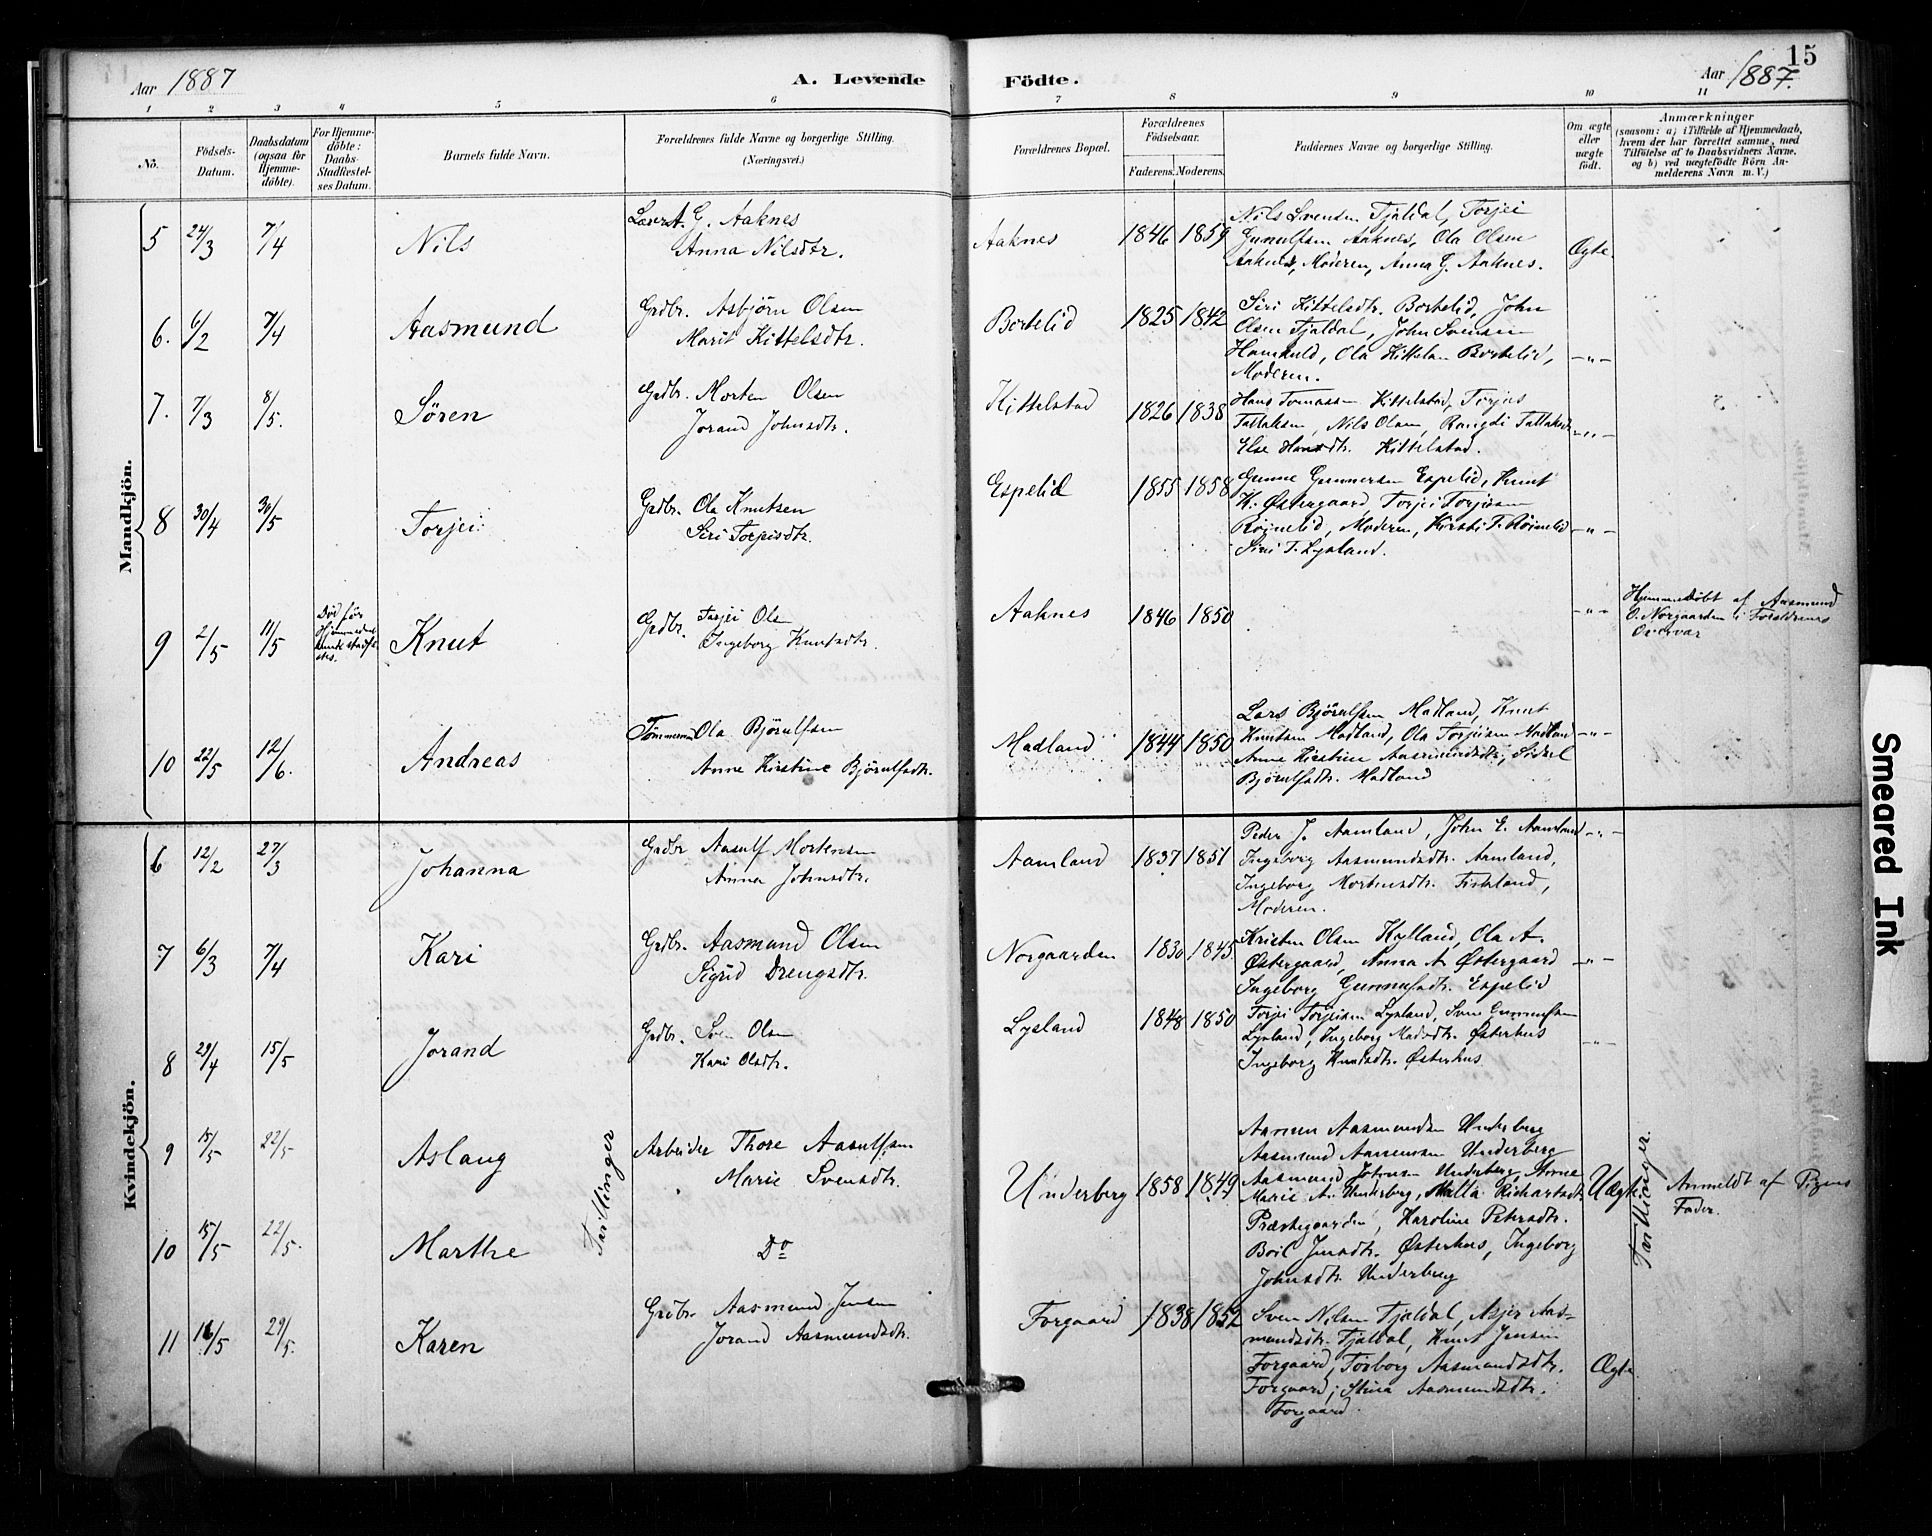 Aar 1887
A. Levende
Födte.
Aar 1887.
15
1 2 3 4 5 6 7 8 9 10 11
No.
Födsels-Datum.
Daabsdatum (ogsaa for Hjemme-döbte).
For Hjemme-döbte: Daabs-Stadfæstel-ses Datum.
Barnets fulde Navn.
Forældrenes fulde Navne og borgerlige Stilling.
(Næringsvei.)
Forældrenes Bopæl.
Forældrenes Födselsaar.
Faderens. Moderens.
Faddernes Navne og borgerlige Stilling.
Om ægte eller uægte födt.
Anmærkninger
(saasom: a) i Tilfælde af Hjemmedaab,
hvem der har forrettet samme, med
Tilföielse af to Daabsvidners Navne.
og b) ved uægtefödte Börn An-
melderens Navn m. V.)
Mandkjön.
5 24/3 7/4 Nils
G. Aaknes
Anna Nilsdtr.
Aaknes 1846 1859
Nils Svensen Tjaldal, Torjei
Gunulfsen Aaknes, Ola Olsen
Aaknes, Moderen, Anna G. Aaknes.
Ægte.
6. 6/2 7/4 Aasmund
Grdbr. Asbjörn Olsen
Marit Kittelsdtr.
Bortelid 1825 1842
Siri Kittelsdtr. Bortelid, John
Olsen Tjaldal, John Svensen
Hamkuld, Ola Kittelsen Bortelid,
Moderen.
–"–
7. 7/3 8/5. Sören
Grdbr. Morten Olsen
Jorand Johnsdtr.
Kittelstad 1826 1838
Hans Tomassen Kittelstad, Torjus
Tallaksen, Nils Olsen, Rangdi Tallaksdtr
Else Hansdtr. Kittelstad.
–"–
8 30/4 30/5 Torjei
Grdbr. Ola Knutsen
Siri Torjeisdtr.
Espelid 1855 1858
Gunne Gunnersen Espelid, Knut
K. Østergaard, Torjei Torjeisen
Röinelid, Moderen, Kirsti T. Röinelid
Siri T. Lysland.
–"–
9 2/5 11/5
Död för
Knut
Grdbr. Torjei Olsen
Ingeborg Knutsdtr.
Aaknes 1846 1850
–"–
Hjemmedöbt af Aasmund
O. Norgaarden i Forældrenes
Overvær
10 22/5 12/6. Andreas
Tömmermd Ola Björulfsen
Anne Kirstine Björulfsdtr.
Madland 1844 1850
Lars Björulfsen Madland, Knut
Knutsen Madland, Ola Torjeisen Madland
Anne Kirstine Aasmundsdtr, Siskel
Björulfsdtr. Madland
–"–
Kvindekjön.
6 12/2 27/3 Johanna
Grdbr Aasulf Mortensen
Anna Johnsdtr.
Aamland 1837 1851
Peder J. Aamland, John E. Aamland
Ingeborg Aasmundsdtr. Aamland,
Ingeborg Mortensdtr. Fiskeland,
Moderen.
–"–
7 6/3 7/4 Kari
Grdbr. Aasmund Olsen
Sigrid Drengsdtr.
Norgaarden 1830 1845
Kristen Olsen Kylland, Ola A.
Østergaard, Anna A. Østergaard
Ingeborg Gunnufsdtr. Espelid
–"–
8 29/4 15/5 Jorand
Grdbr. Sven Olsen
Kari Olsdtr.
Lysland 1848 1850
Torjei Torjeisen Lysland, Sven Gunnufsen
Lysland, Ingeborg Madsdtr. Østerhus
Ingeborg Knutsdtr. Østerhus
–"–
9 15/5 22/5 Aslaug
Tvillinger
Arbeider Thore Aasulfsen
Marie Svensdtr.
Underberg 1858 1849
Aanen Aasmundsen Underberg
Aasmund Aanensen Underberg
Aasmund Johnsen Underberg, Anne
Marie A. Underberg, Malla Richartsdtr
Præstegaarden, Karoline Petersdtr.
Boil Jensdtr. Østerhus, Ingeborg
Johnsdtr. Underberg
Uægte
Tvillinger.
Anmeldt af Pigens
Fader.
10 15/5 22/5. Marthe
Do
11 16/5 29/5. Karen
Grdbr. Aasmund Jensen
Jorand Aasmundsdtr.
Forgaard 1838 1852
Sven Nilsen Tjaldal, Asjer Aas-
mundsdtr. Tjaldal, Knut Jensen
Forgaard, Torborg Aasmundsdtr.
Forgaard, Stina Aasmundsdtr.
Forgaard.
Ægte
Smeared Ink